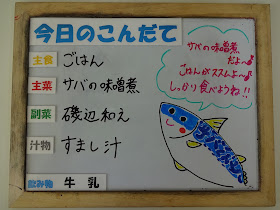 今日のこんだて
主食 ごはん
主菜 サバの味噌煮
副菜 磯辺和え
汁物 すまし汁
飲み物 牛乳
サバの味噌煮
だよ～♪
ごはんがススムよ～♪
しっかり食べようね!!